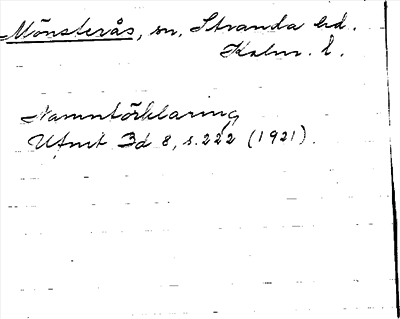 Mönsterås, sn, Stranda hd.
Kalm. l.
Namnförklaring
Ufmit Bd 8, s. 222 (1921).